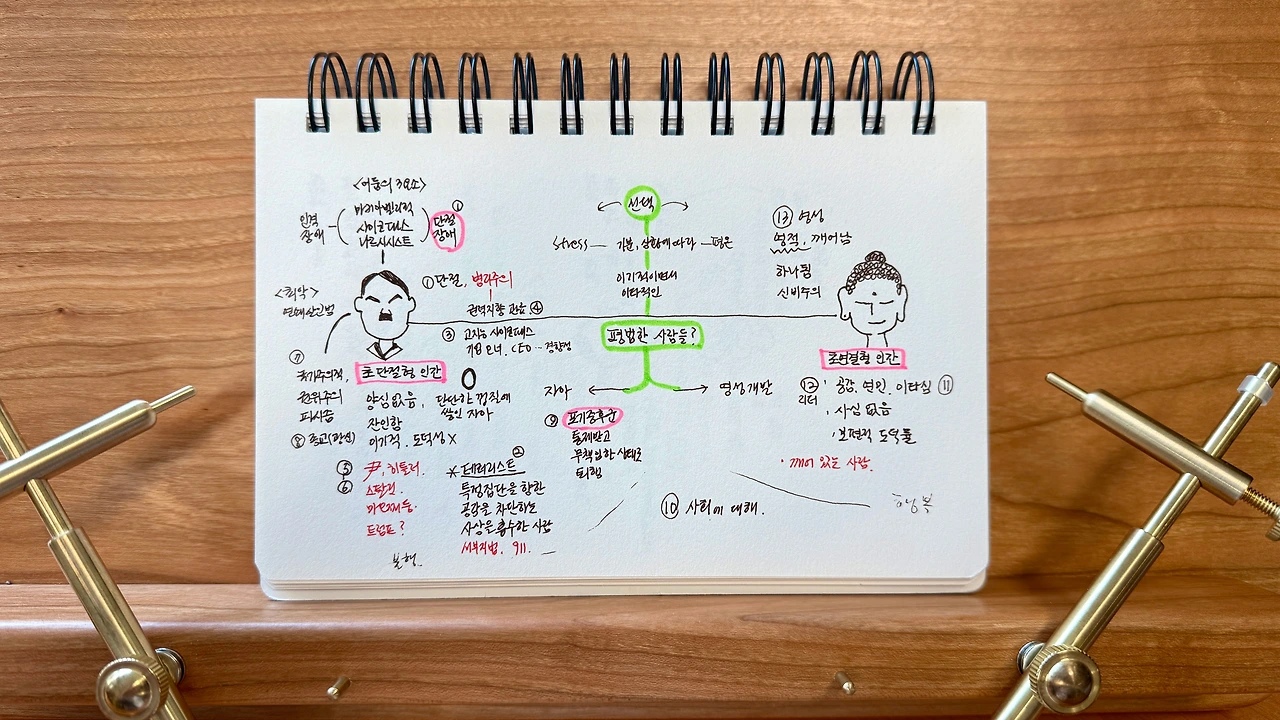 <어둠의 3요소>
인격
장애
마키아벨리적
사이코패스
나르시시스트
① 단절
장애
<최악>
연쇄살인범
① 단절, 병리주의
권력지향 관료 ④
③ 고지능 사이코패스
기업 오너, CEO … 경향성
⑦
국가주의적,
권위주의
파시즘
⑧ 종교(광신)
초 단절형 인간
양심없음,
잔인함
이기적. 도덕성 X
단단한 껍질에
쌓인 자아
⑤ 尹, 히틀러.
⑥ 스탈린.
마오쩌둥.
트럼프?
불행..
② * 테러리스트
특정집단을 향한
공감을 차단하는
사상을 흡수한 사람
서부지법, 911.
선택
stress — 기분, 상황에 따라 — 평온
이기적이면서
이타적인
평범한 사람들?
자아
영성개발
⑨ 포기증후군
통제받고
무책임한 상태로
퇴행
⑩ 사회에 대해.
⑬ 영성
영적, 깨어남
하나됨
신비주의
초연결형 인간
⑫
리더
· 공감, 연민, 이타심 ⑪
· 사심 없음
· 보편적 도덕률
· 깨어 있는 사람.
행복